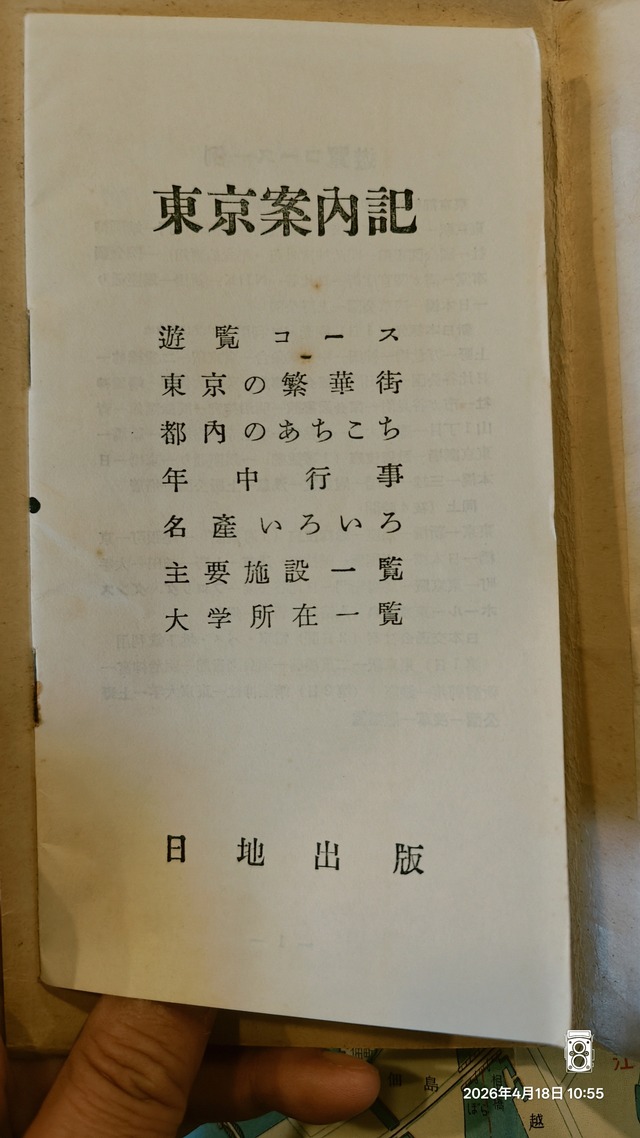 東京案內記
遊覧コース
東京の繁華街
都内のあちこち
年中行事
名產いろいろ
主要施設一覧
大学所在一覧
日地出版
佃島
越
江
2026年4月18日 10:55